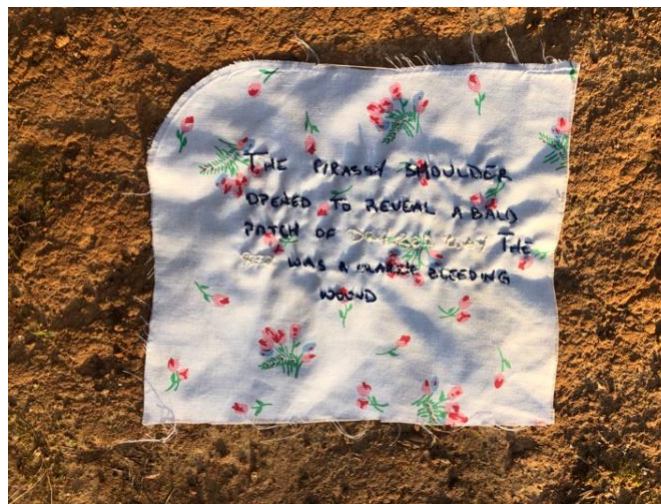 THE GRASSY SHOULDER
OPENED TO REVEAL A BALD
PATCH OF THE
WAS A BLEEDING
WOUND